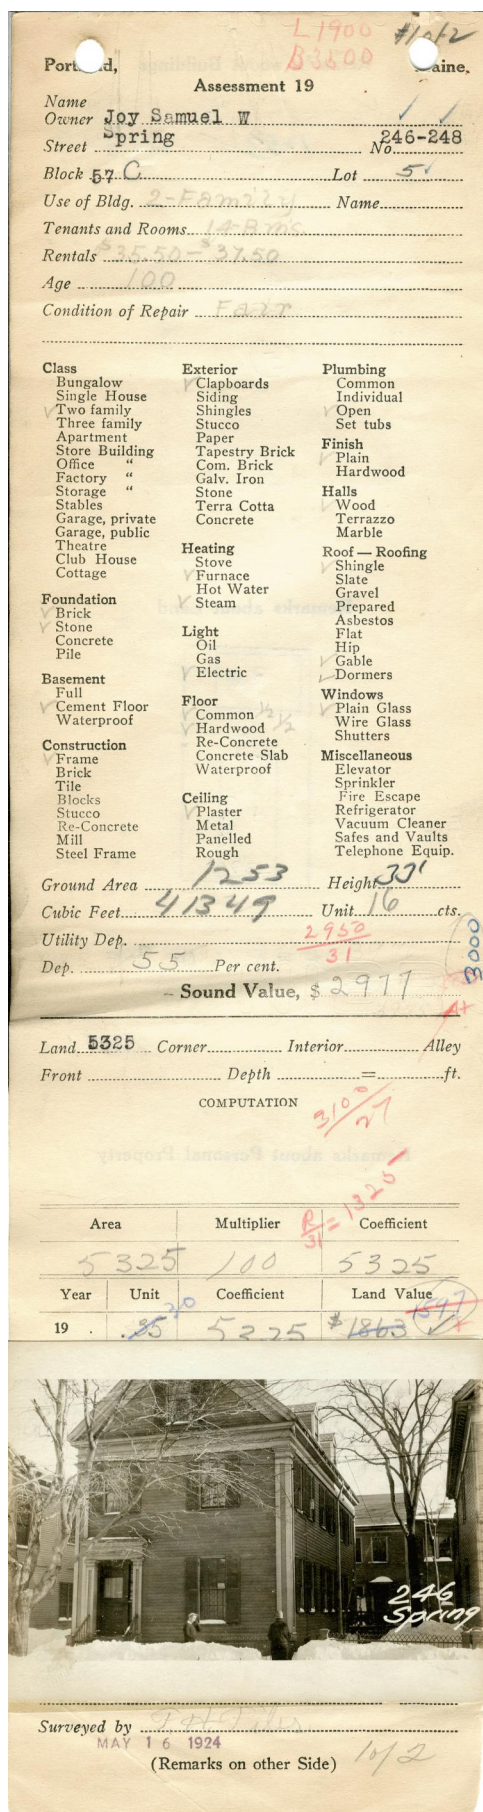 L1900 #1 of 2
B3500
Portland, Maine.
Assessment 19
Name
Owner Joy Samuel W
Street Spring No 246-248
Block 57 C Lot 5
Use of Bldg. 2-Family Name
Tenants and Rooms 14-Rms
Rentals $35.50-$37.50
Age 100
Condition of Repair Fair
Class
Bungalow
Single House
✓ Two family
Three family
Apartment
Store Building
Office "
Factory "
Storage "
Stables
Garage, private
Garage, public
Theatre
Club House
Cottage
Foundation
✓ Brick
✓ Stone
Concrete
Pile
Basement
Full
✓ Cement Floor
Waterproof
Construction
✓ Frame
Brick
Tile
Blocks
Stucco
Re-Concrete
Mill
Steel Frame
Exterior
✓ Clapboards
Siding
Shingles
Stucco
Paper
Tapestry Brick
Com. Brick
Galv. Iron
Stone
Terra Cotta
Concrete
Heating
Stove
✓ Furnace
Hot Water
✓ Steam
Light
Oil
Gas
✓ Electric
Floor
✓ Common 1/2
✓ Hardwood 1/2
Re-Concrete
Concrete Slab
Waterproof
Ceiling
✓ Plaster
Metal
Panelled
Rough
Plumbing
Common
Individual
✓ Open
Set tubs
Finish
✓ Plain
Hardwood
Halls
✓ Wood
Terrazzo
Marble
Roof — Roofing
✓ Shingle
Slate
Gravel
Prepared
Asbestos
Flat
Hip
✓ Gable
✓ Dormers
Windows
✓ Plain Glass
Wire Glass
Shutters
Miscellaneous
Elevator
Sprinkler
Fire Escape
Refrigerator
Vacuum Cleaner
Safes and Vaults
Telephone Equip.
Ground Area 1253 Height 33'
Cubic Feet 41349 Unit 16 cts.
Utility Dep. 2950
31
3000
Dep. 55 Per cent.
Sound Value, $ 2977
Land 5325 Corner Interior Alley
Front Depth = ft.
COMPUTATION
3100
27
R/31 = 1325
Area Multiplier Coefficient
5325 100 5325
Year Unit Coefficient Land Value
1597
30
19 . .35 5325 $1863
246
Spring
Surveyed by
MAY 16 1924
(Remarks on other Side) 1 of 2